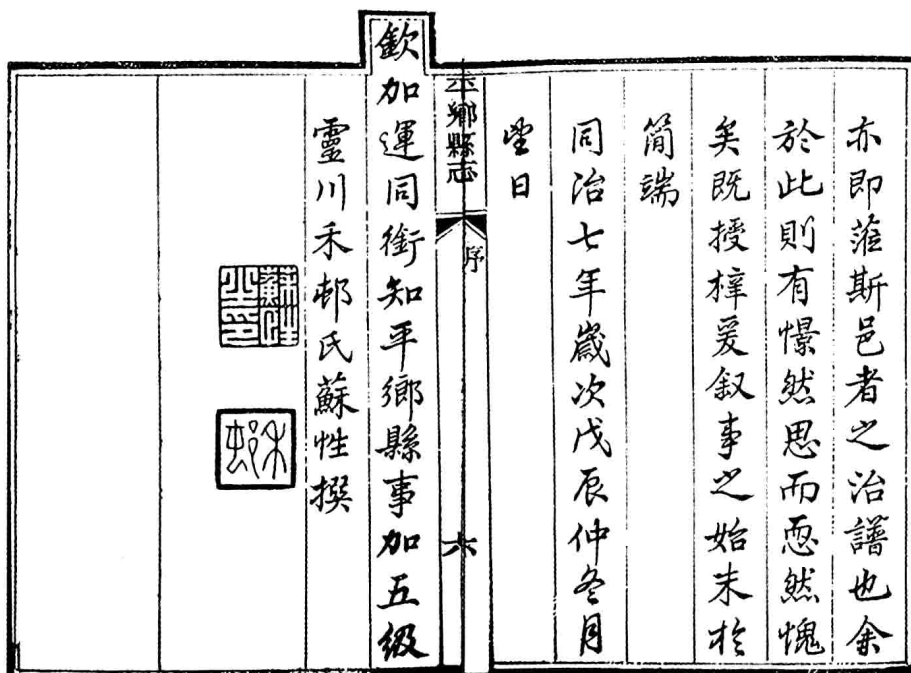 亦即蒞斯邑者之治譜也余
於此則有憬然思而恧然愧
矣既授梓爰叙事之始末於
簡端
同治七年歲次戊辰仲冬月
望日
平鄉縣志
序
六
欽加運同銜知平鄉縣事加五級
靈川禾邨氏蘇性撰
蘇性之印
禾邨